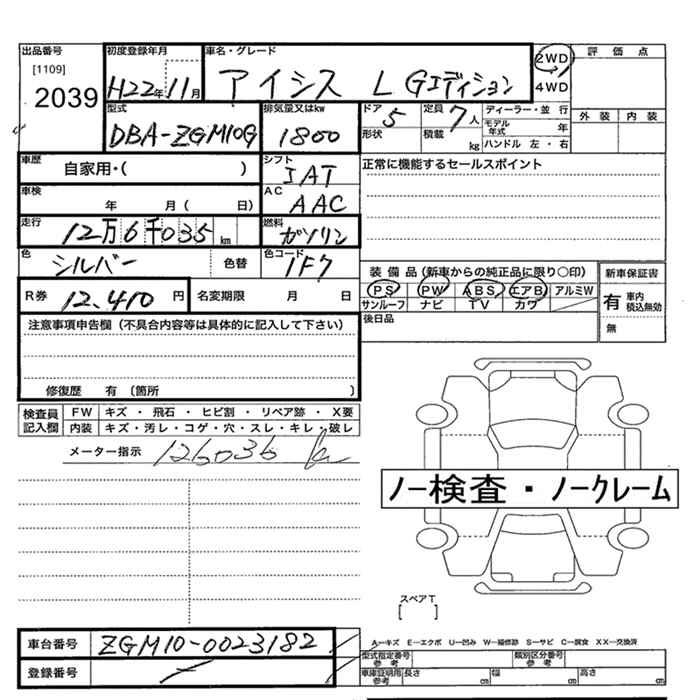 出品番号 初度登録年月 車名・グレード 2WD 評価点
[1109] 2039 H22年11月 アイシス L Gエディション 4WD
型式 排気量又はkw ドア 5 定員 7人 ディーラー・並行 外装 内装
DBA-ZGM10G 1800 形状 積載 kg モデル年式 年 ハンドル 左・右
車歴 自家用・( ) シフト IAT 正常に機能するセールスポイント
車検 年 月( 日) AC AAC
走行 12万6千035km 燃料 ガソリン
色 シルバー 色替 色コード 1F7 装備品(新車からの純正品に限り○印) 新車保証書
R券 12,410円 名変期限 月 日 PS PW ABS エアB アルミW 有 車内 積込無効
サンルーフ ナビ TV カワ 無
注意事項申告欄(不具合内容等は具体的に記入して下さい) 後日品
修復歴 有 〔箇所 〕
検査員記入欄 FW キズ・飛石・ヒビ割・リペア跡・X要
内装 キズ・汚レ・コゲ・穴・スレ・キレ・破レ
メーター指示 126036 k
ノー検査・ノークレーム
スペアT
[ ]
車台番号 ZGM10-0023182 A―キズ E―エクボ U―凹み W―補修跡 S―サビ C―腐食 XX―交換済
型式指定番号 参考 類別区分番号 参考
登録番号 車庫証明用 参考 長さ cm 幅 cm 高さ cm